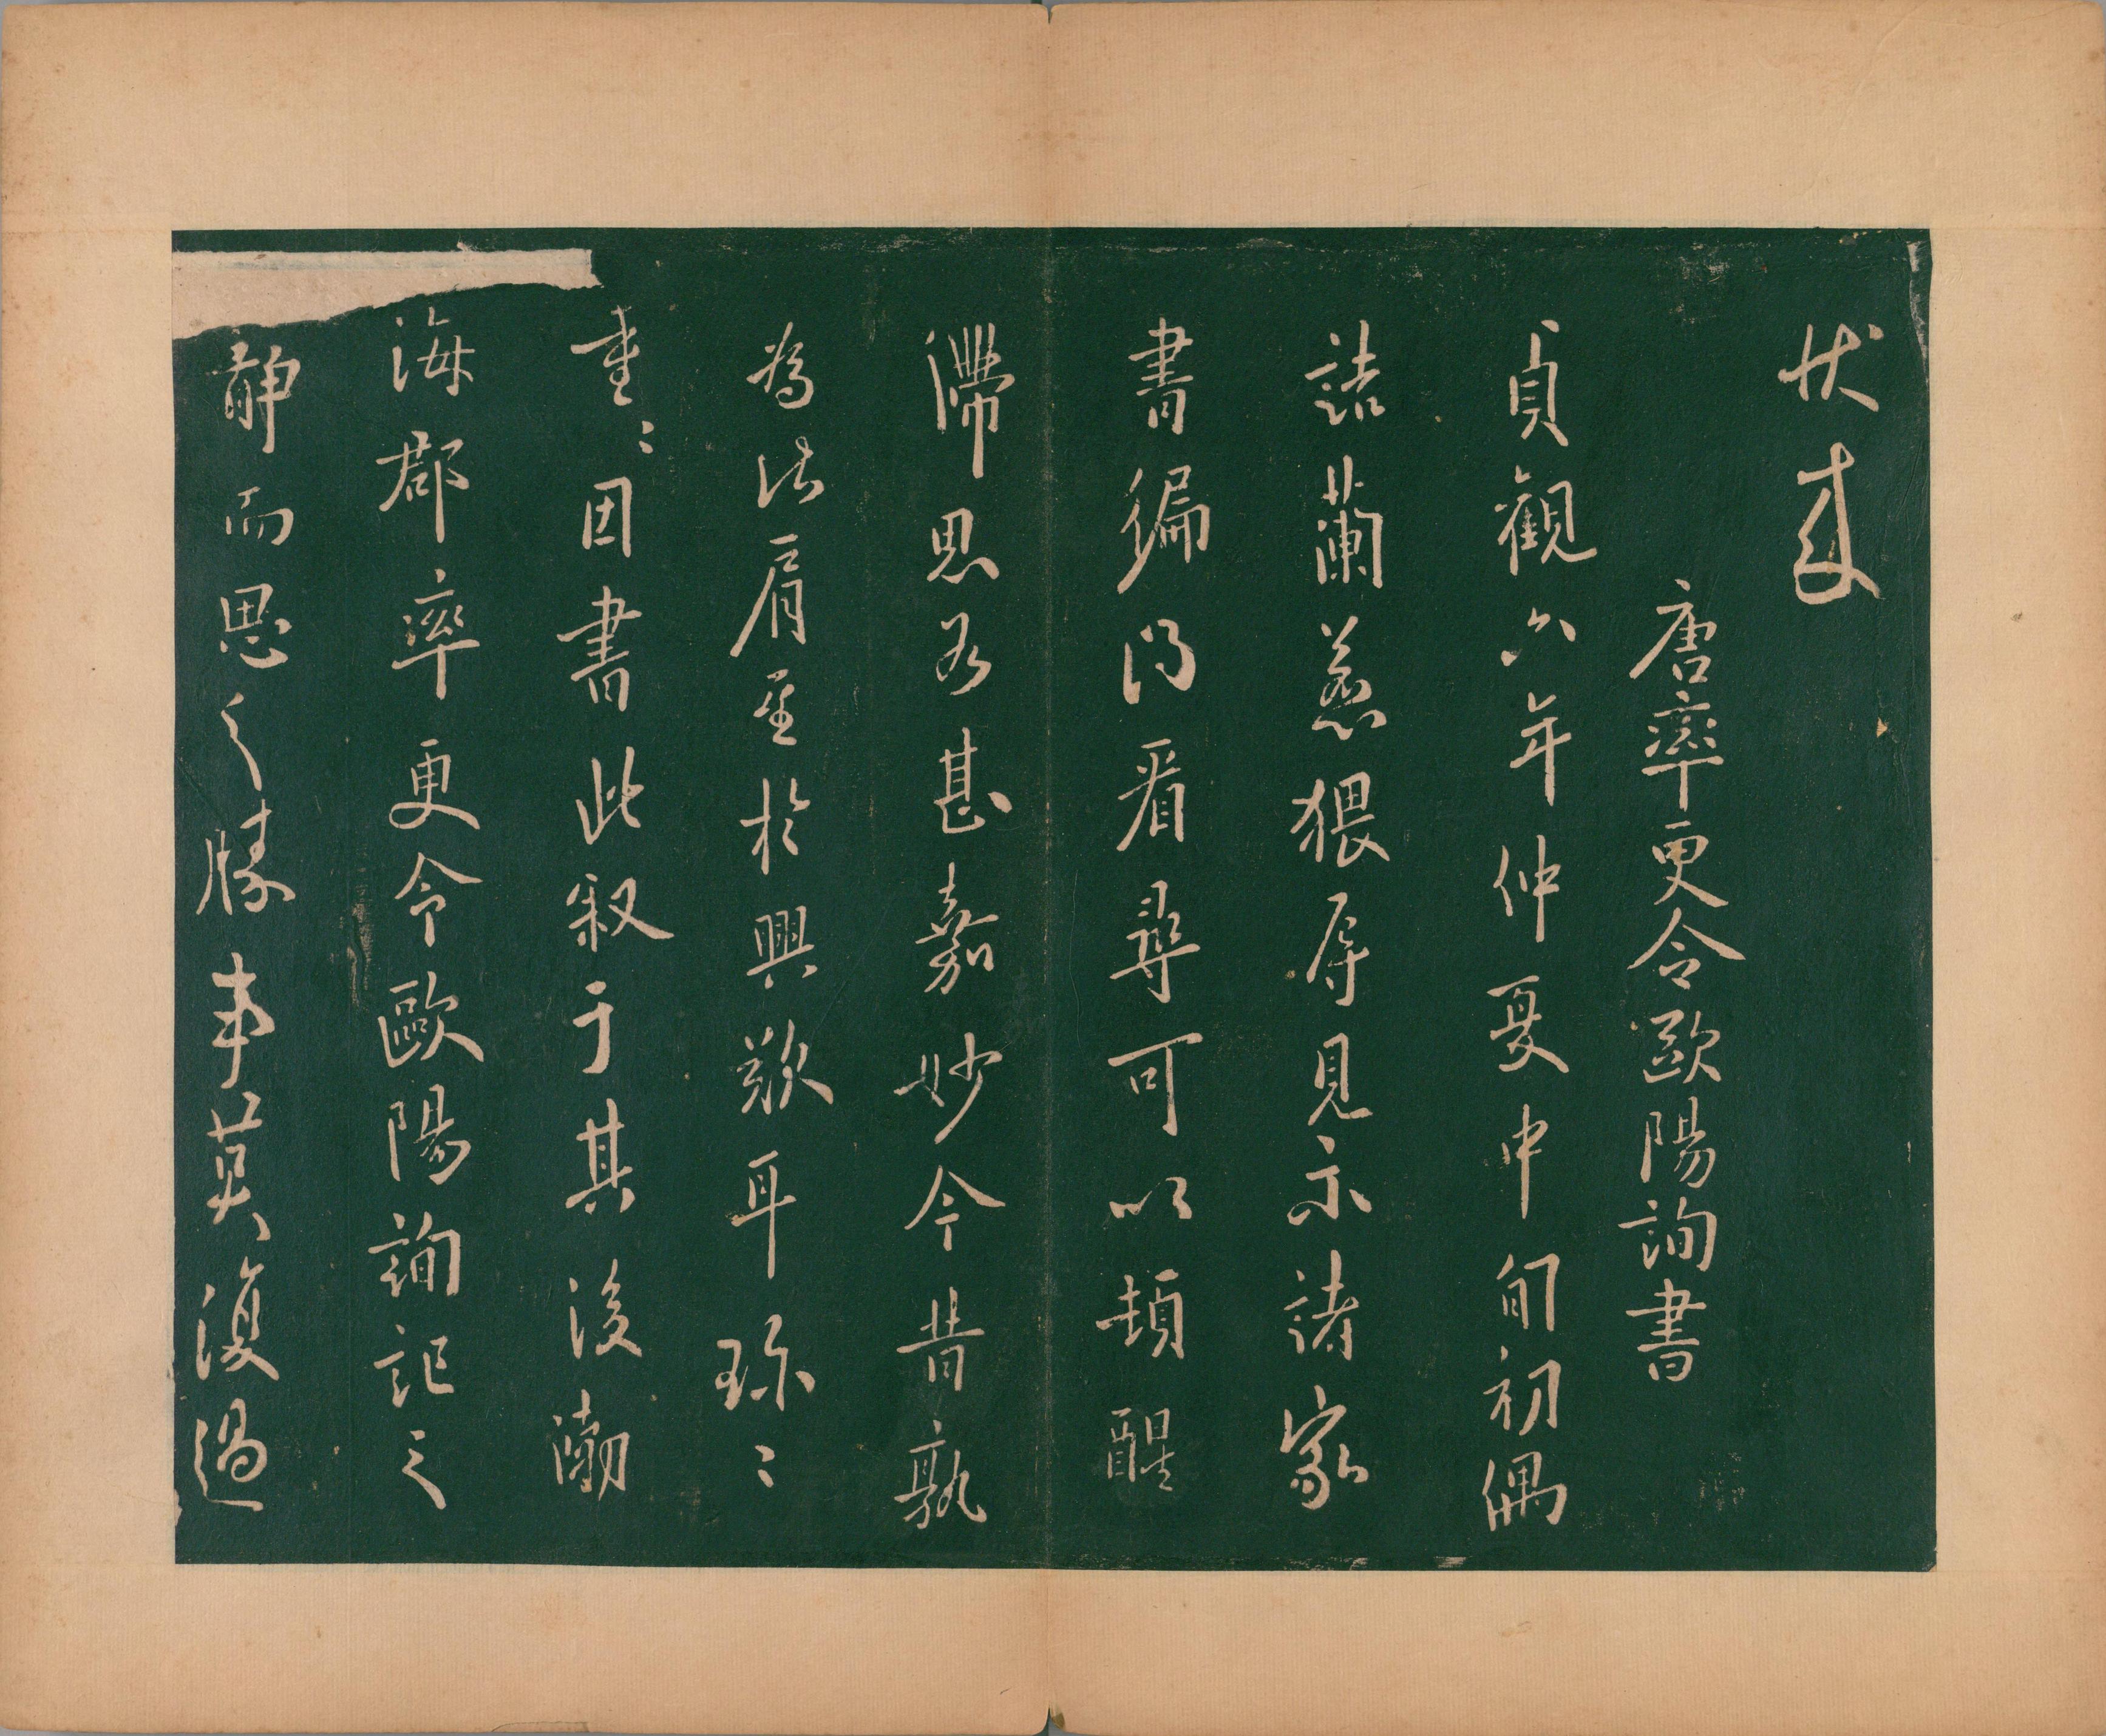 伏
唐率更令歐陽詢書
貞觀六年仲夏中旬初偶
詰蘭惹猥辱見示諸家
書徧得看尋可以頓醒
滯思甚嘉妙今昔孰
為比肩至於興歎耳珍〻
重〻因書此叙于其後渤
海郡率更令歐陽詢記之
靜而思之勝事莫復過